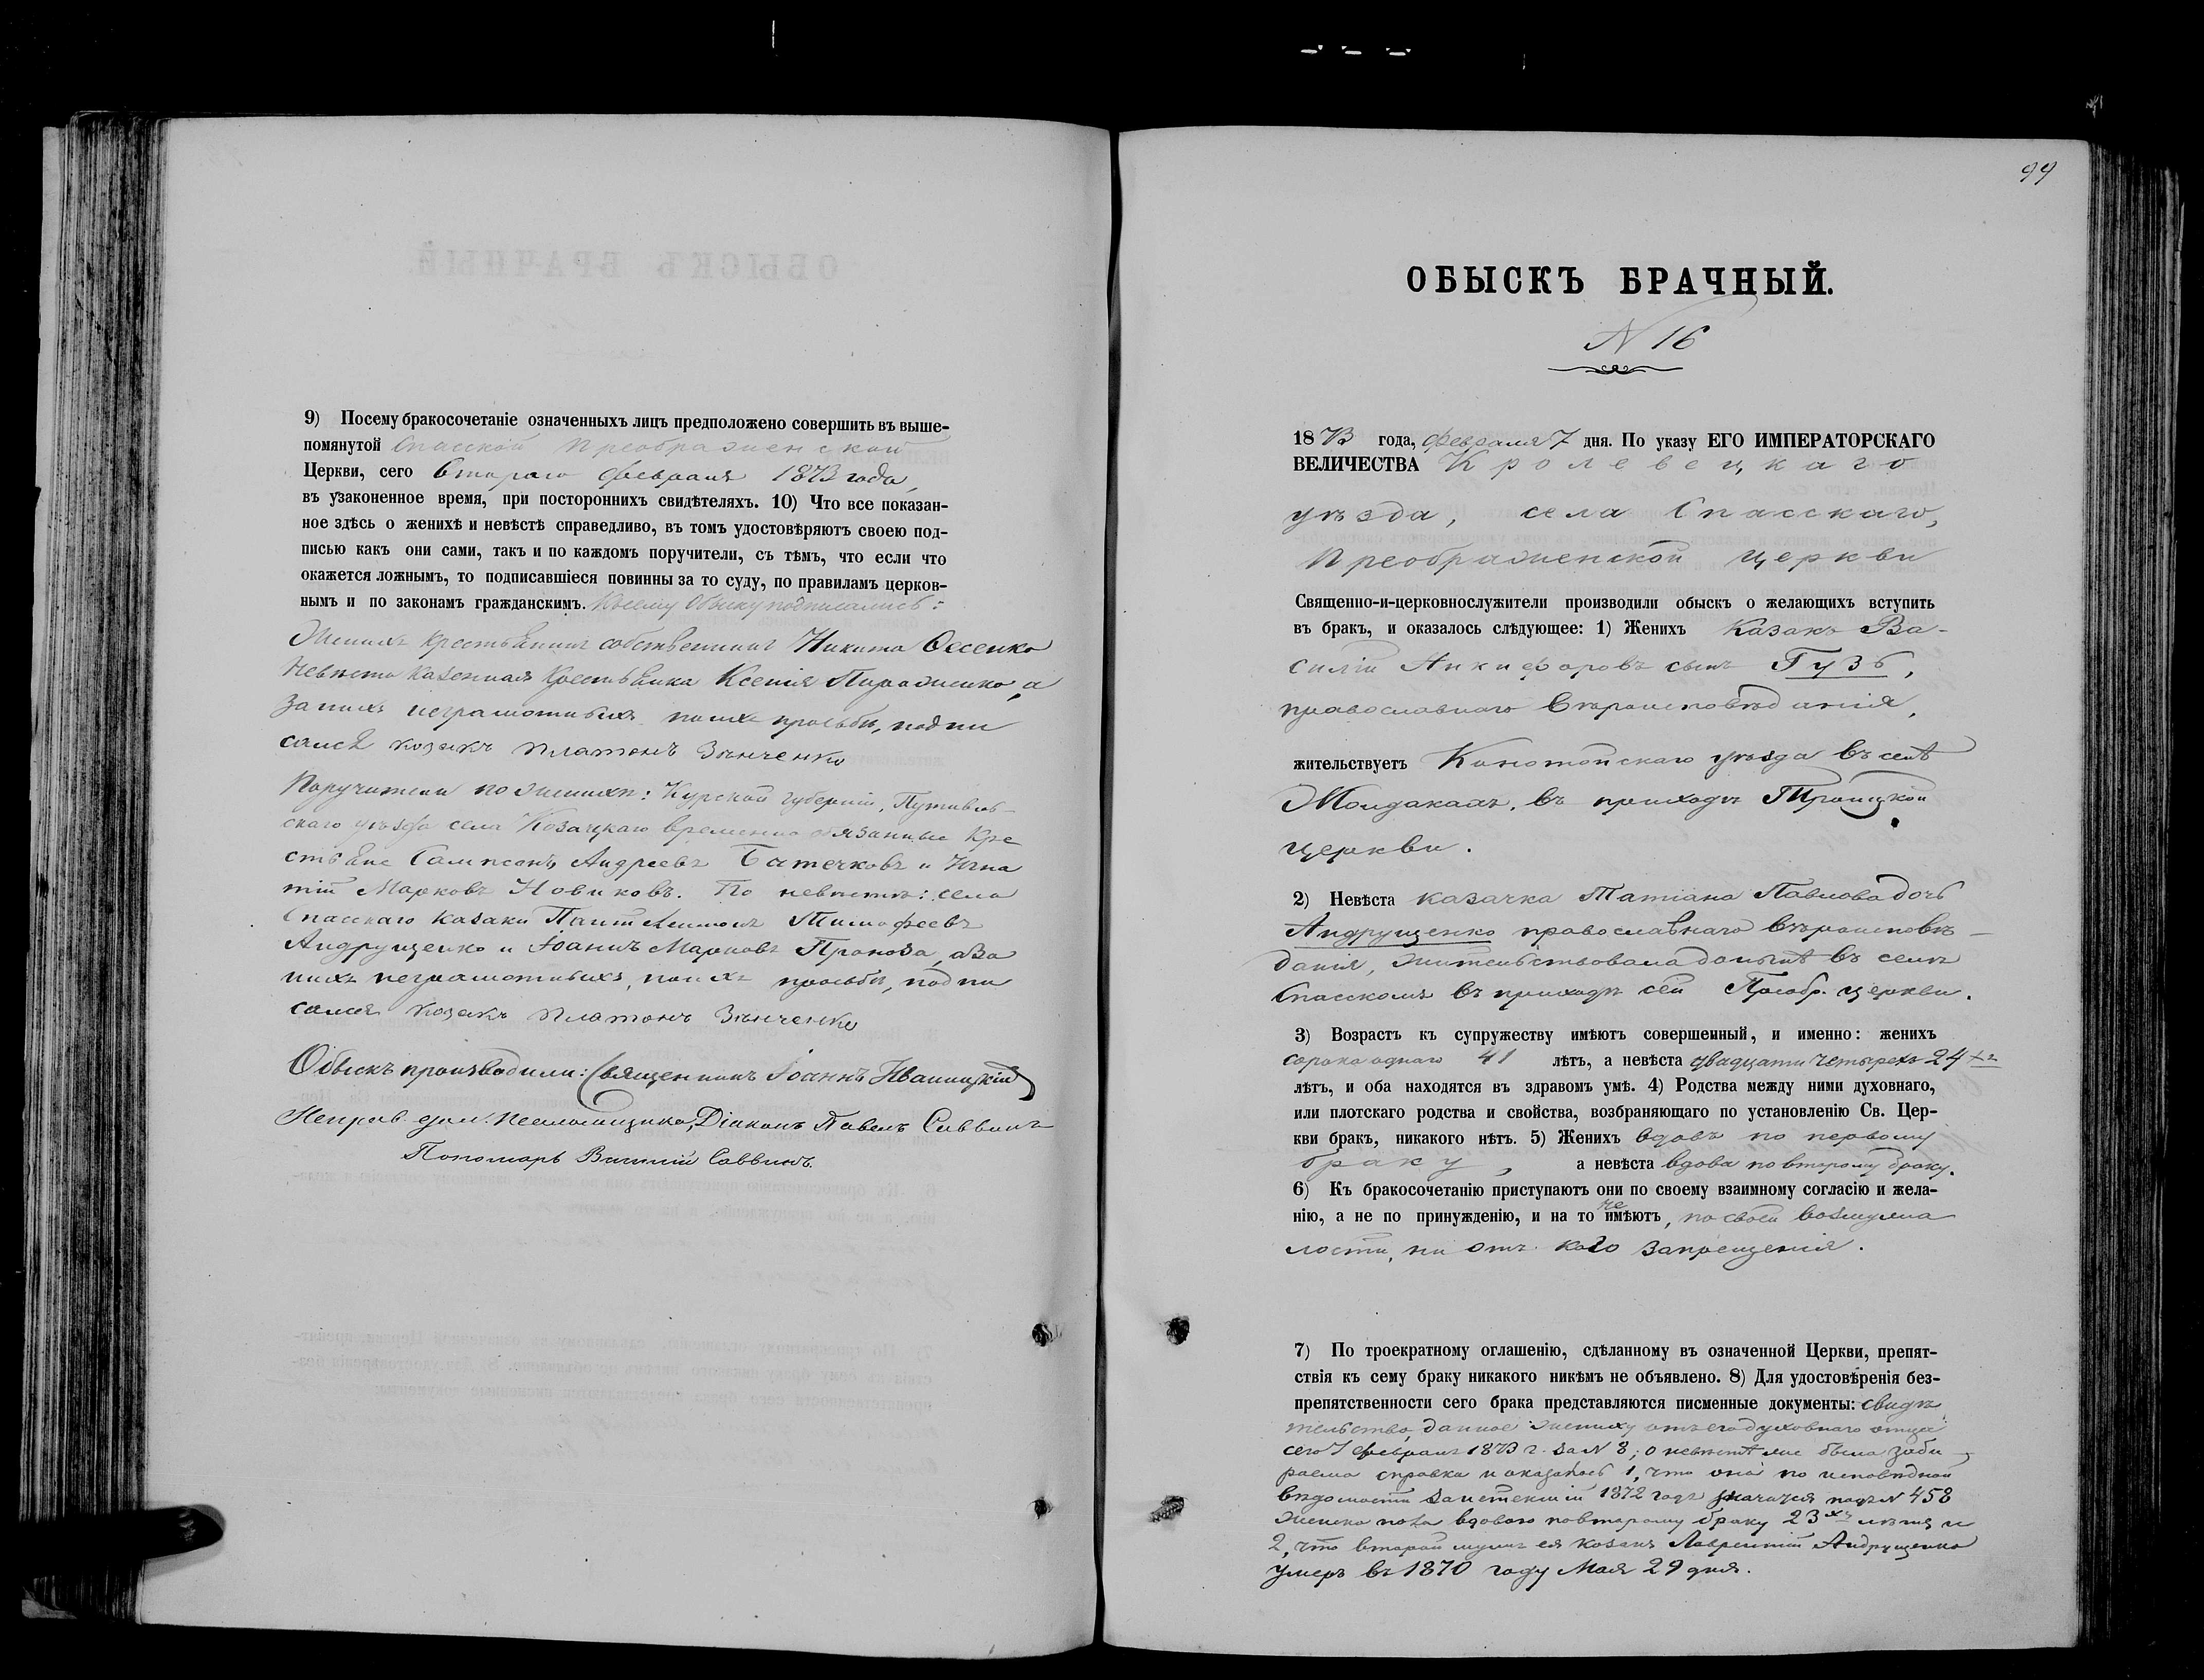 9) Посему бракосочетаніе означенныхъ лицъ предположено совершить въ выше-
помянутой Спасской Преображенской
Церкви, сего втораго февраля 1873 года,
въ узаконенное время, при постороннихъ свидѣтеляхъ. 10) Что все показан-
ное здѣсь о женихѣ и невѣстѣ справедливо, въ томъ удостовѣряютъ своею под-
писью какъ они сами, такъ и по каждомъ поручители, съ тѣмъ, что если что
окажется ложнымъ, то подписавшіеся повинны за то суду, по правиламъ церков-
нымъ и по законамъ гражданскимъ. Ксему Обыску подписались:
Женихъ крестьянинъ собственникъ Никита Фесенко
Невѣста казенная крестьянка Ксенія Пироженко, а
за нихъ неграмотныхъ по ихъ просьбѣ, подпи
сался козакъ Платонъ Зѣнченко
Поручители по женихѣ: Курской губерніи, Путивль
скаго уѣзда села Козацкаго временно обязанные кре
стьяне Сампсонъ Андреевъ Батечковъ и Игна
тій Марковъ Новиковъ. По невѣстѣ: села
Спасскаго казаки Пантелимонъ Тимофеевъ
Андрущенко и Іоаннъ Марковъ Проноза, а за
нихъ неграмотныхъ, по ихъ просьбѣ, подпи
сался козакъ Платонъ Зѣнченко
Обыскъ производили: Священникъ Іоаннъ Иваницкій
Исправ. дол. псаломщика, Діаконъ Павелъ Саввинъ
Пономарь Василій Саввинъ.
99
ОБЫСКЪ БРАЧНЫЙ.
N 16
1873 года, февраля 7 дня. По указу ЕГО ИМПЕРАТОРСКАГО
ВЕЛИЧЕСТВА Кролевецкаго
уѣзда, села Спасскаго,
Преображенской церкви
Священно-и-церковнослужители производили обыскъ о желающихъ вступить
въ бракъ, и оказалось слѣдующее: 1) Женихъ Казакъ Ва-
силій Никифоровъ сынъ Гузь,
православнаго вѣроисповѣданія,
жительствуетъ Конотопскаго уѣзда въ селѣ
въ приходѣ Троицкой
церкви.
2) Невѣста казачка Татіана Павлова дочь
Андрущенко православнаго вѣроисповѣ-
данія, жительствовала донынѣ въ селѣ
Спасскомъ въ приходѣ сей Преобр. церкви.
3) Возрастъ къ супружеству имѣютъ совершенный, и именно: женихъ
сорока одного 41 лѣтъ, а невѣста двадцати четырехъ 24хъ
лѣтъ, и оба находятся въ здравомъ умѣ. 4) Родства между ними духовнаго,
или плотскаго родства и свойства, возбраняющаго по установленію Св. Цер-
кви бракъ, никакого нѣтъ. 5) Женихъ вдовъ по первому
браку, а невѣста вдова по второму браку.
6) Къ бракосочетанію приступаютъ они по своему взаимному согласію и жела-
нію, а не по принужденію, и на то не имѣютъ, по своей возмужа
лости, ни отъ кого запрещенія.
7) По троекратному оглашенію, сдѣланному въ означенной Церкви, препят-
ствія къ сему браку никакого никѣмъ не объявлено. 8) Для удостовѣренія без-
препятственности сего брака представляются писменные документы: свидѣ
тельство, данное жениху отъ его духовнаго отца
сего 7 февраля 1873 г. за N 8; о невѣстѣ же была заби
раема справка и оказалось 1, что она по исповѣдной
вѣдомости за истекшій 1872 годъ значится подъ N 458
женска пола вдовою по второму браку 23хъ лѣтъ и
2, что второй мужъ ея козакъ Лаврентій Андрущенко
умеръ въ 1870 году Мая 29 дня.